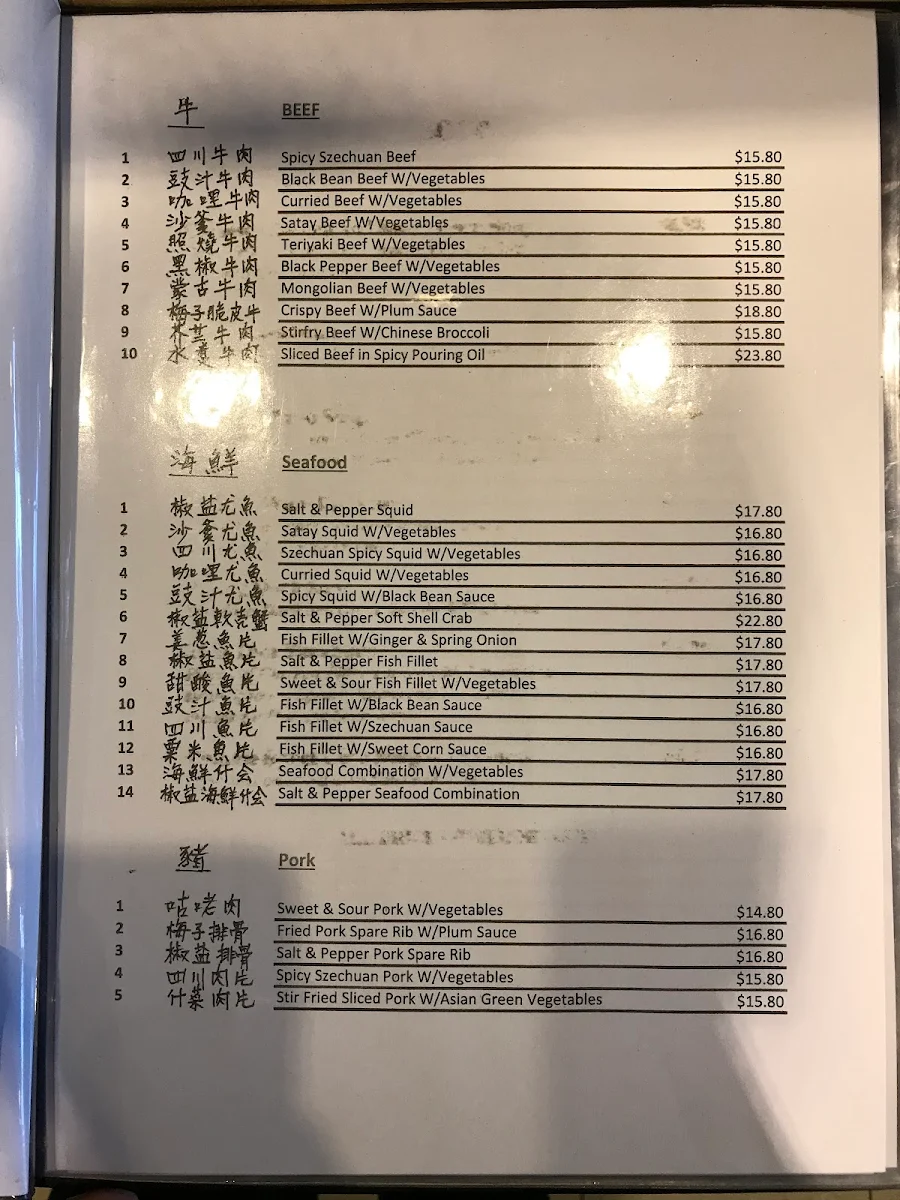 牛 BEEF
1 四川牛肉 Spicy Szechuan Beef $15.80
2 豉汁牛肉 Black Bean Beef W/Vegetables $15.80
3 咖喱牛肉 Curried Beef W/Vegetables $15.80
4 沙爹牛肉 Satay Beef W/Vegetables $15.80
5 照燒牛肉 Teriyaki Beef W/Vegetables $15.80
6 黑椒牛肉 Black Pepper Beef W/Vegetables $15.80
7 蒙古牛肉 Mongolian Beef W/Vegetables $15.80
8 梅子脆皮牛 Crispy Beef W/Plum Sauce $18.80
9 芥兰牛肉 Stirfry Beef W/Chinese Broccoli $15.80
10 水煮牛肉 Sliced Beef in Spicy Pouring Oil $23.80
海鮮 Seafood
1 椒盐尤魚 Salt & Pepper Squid $17.80
2 沙爹尤魚 Satay Squid W/Vegetables $16.80
3 四川尤魚 Szechuan Spicy Squid W/Vegetables $16.80
4 咖喱尤魚 Curried Squid W/Vegetables $16.80
5 豉汁尤魚 Spicy Squid W/Black Bean Sauce $16.80
6 椒盐軟壳蟹 Salt & Pepper Soft Shell Crab $22.80
7 姜葱魚片 Fish Fillet W/Ginger & Spring Onion $17.80
8 椒盐魚片 Salt & Pepper Fish Fillet $17.80
9 甜酸魚片 Sweet & Sour Fish Fillet W/Vegetables $17.80
10 豉汁魚片 Fish Fillet W/Black Bean Sauce $16.80
11 四川魚片 Fish Fillet W/Szechuan Sauce $16.80
12 粟米魚片 Fish Fillet W/Sweet Corn Sauce $16.80
13 海鮮什会 Seafood Combination W/Vegetables $17.80
14 椒盐海鮮什会 Salt & Pepper Seafood Combination $17.80
豬 Pork
1 咕咾肉 Sweet & Sour Pork W/Vegetables $14.80
2 梅子排骨 Fried Pork Spare Rib W/Plum Sauce $16.80
3 椒盐排骨 Salt & Pepper Pork Spare Rib $16.80
4 四川肉片 Spicy Szechuan Pork W/Vegetables $15.80
5 什菜肉片 Stir Fried Sliced Pork W/Asian Green Vegetables $15.80